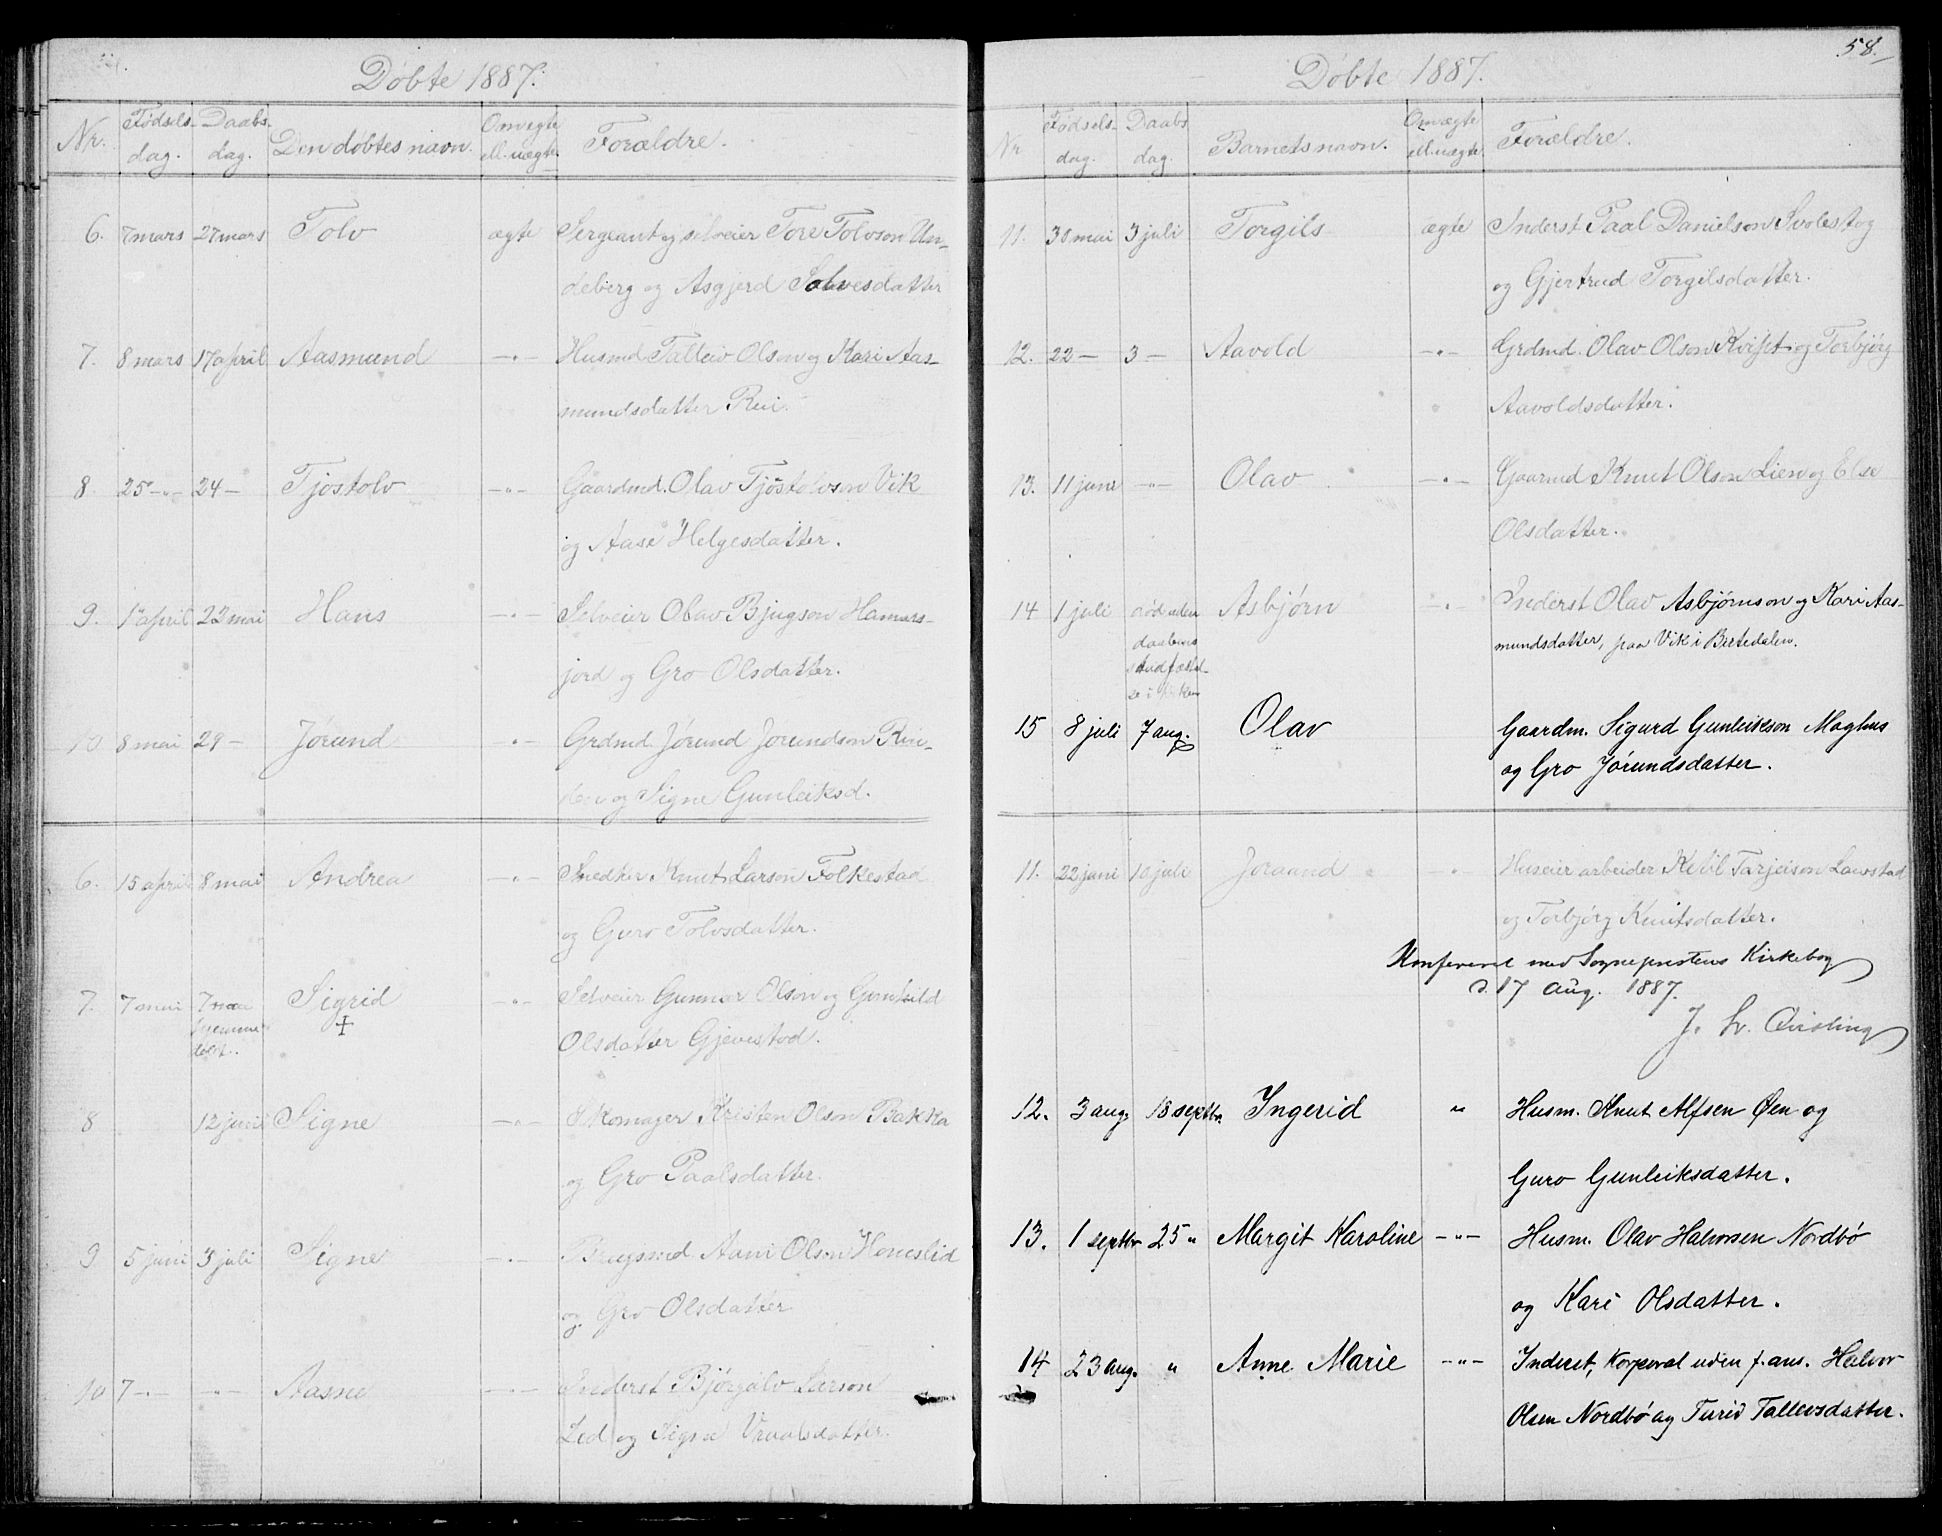 Døbte 1887.
Nr. Fødsels- dag. Daabs- dag. Den døbtes navn. Om ægte ell. uægte. Forældre.
6. 7 mars 27 mars Tolv ægte Sergeant og selveier Tore Tolvson Un-
deberg og Asgjerd Solvesdatter
7. 8 mars 17 april Aasmund -"- Husmd. Talleiv Olson og Kari Aas-
mundsdatter Rui.
8. 25 -"- 24 - Tjøstolv -"- Gaardmd. Olav Tjøstolvson Vik
og Aase Helgesdatter.
9. 1 april 22 mai Hans -"- Selveier Olav Bjugson Hamars-
jord og Gro Olsdatter.
10 8 mai 29 - Jørund -"- Grdmd. Jørund Jørundson Rui-
og Signe Gunleiksd.
6. 15 april 8 mai Andrea -"- Snedker Knut Larson Folkestad
og Guro Tolvsdatter.
7. 7 mai 7 mai Sigrid -"- Selveier Gunnar Olson og Gunhild
hjemme- + Olsdatter Gjevestad.
døbt.
8 12 juni Signe -"- Skomager Kristen Olson Bakka
og Gro Paalsdatter.
9 5 juni 3 juli Signe -"- Brugsmd. Aani Olson Honeslid
og Gro Olsdatter
10 7 - -"- Aasne -"- Inderst Bjørgulv Larson
Lid og Signe Vraalsdatter.
58.
Døbte 1887.
Nr Fødsels- dag. Daabs dag. Barnets navn. Om ægte ell. uægte Forældre.
11. 30 mai 3 juli Torgils ægte Inderst Paal Danielson Svolestog
og Gjertrud Torgilsdatter.
12. 22 - 3 - Aavold -"- Grdmd. Olav Olson Kvist og Torbjørg
" Aavoldsdatter.
13. 11 juni -"- Olav -"- Gaarmd Knut Olson Lien og Else
Olsdatter.
14 1 juli død uden Asbjørn -"- Inderst Olav Asbjørnson og Kari Aas-
daabens mundsdatter, paa Vik i Bertedalen.
stadfæstel-
se i kirken
15 8 juli 7 aug. Olav Gaardm. Sigurd Gunleikson Maghus
og Gro Jørundsdatter.
11. 22 juni 10 juli Joraand -"- Huseier arbeider Ketil Tarjeison Lavstad
og Torbjørg Knutsdatter.
Konfereret med Sogneprestens Kirkebog
d. 17 Aug. 1887.
J. L. Qvisling
12. 3 aug. 18 septbr. Ingerid " Husm. Knut Alfsen Øen og
Guro Gunleiksdatter.
13. 1 septbr 25 " Margit Karoline -"- Husm. Olav Halvorsen Nordbø
og Kari Olsdatter.
14 23 aug. " Anne Marie -"- Inderst, Korporal uden f. ans. Halvor
Olsen Nordbø og Turid Talleivsdatter.